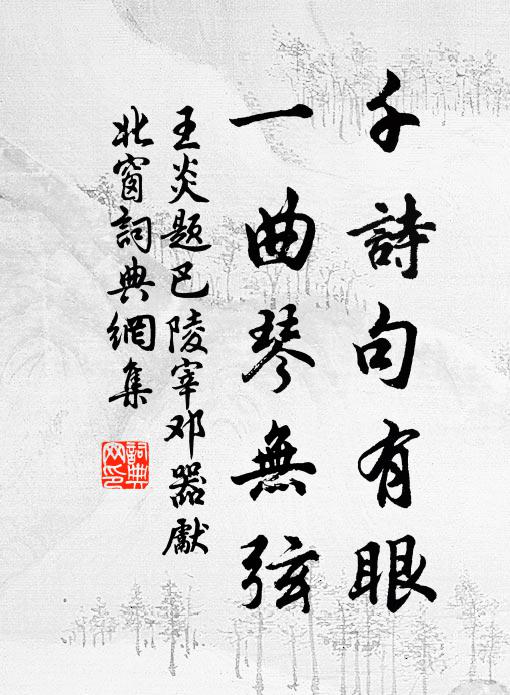 千詩句有眼
一曲琴無弦
王炎题巴陵宰邓器獻
北窗詞典網集
詞典网印